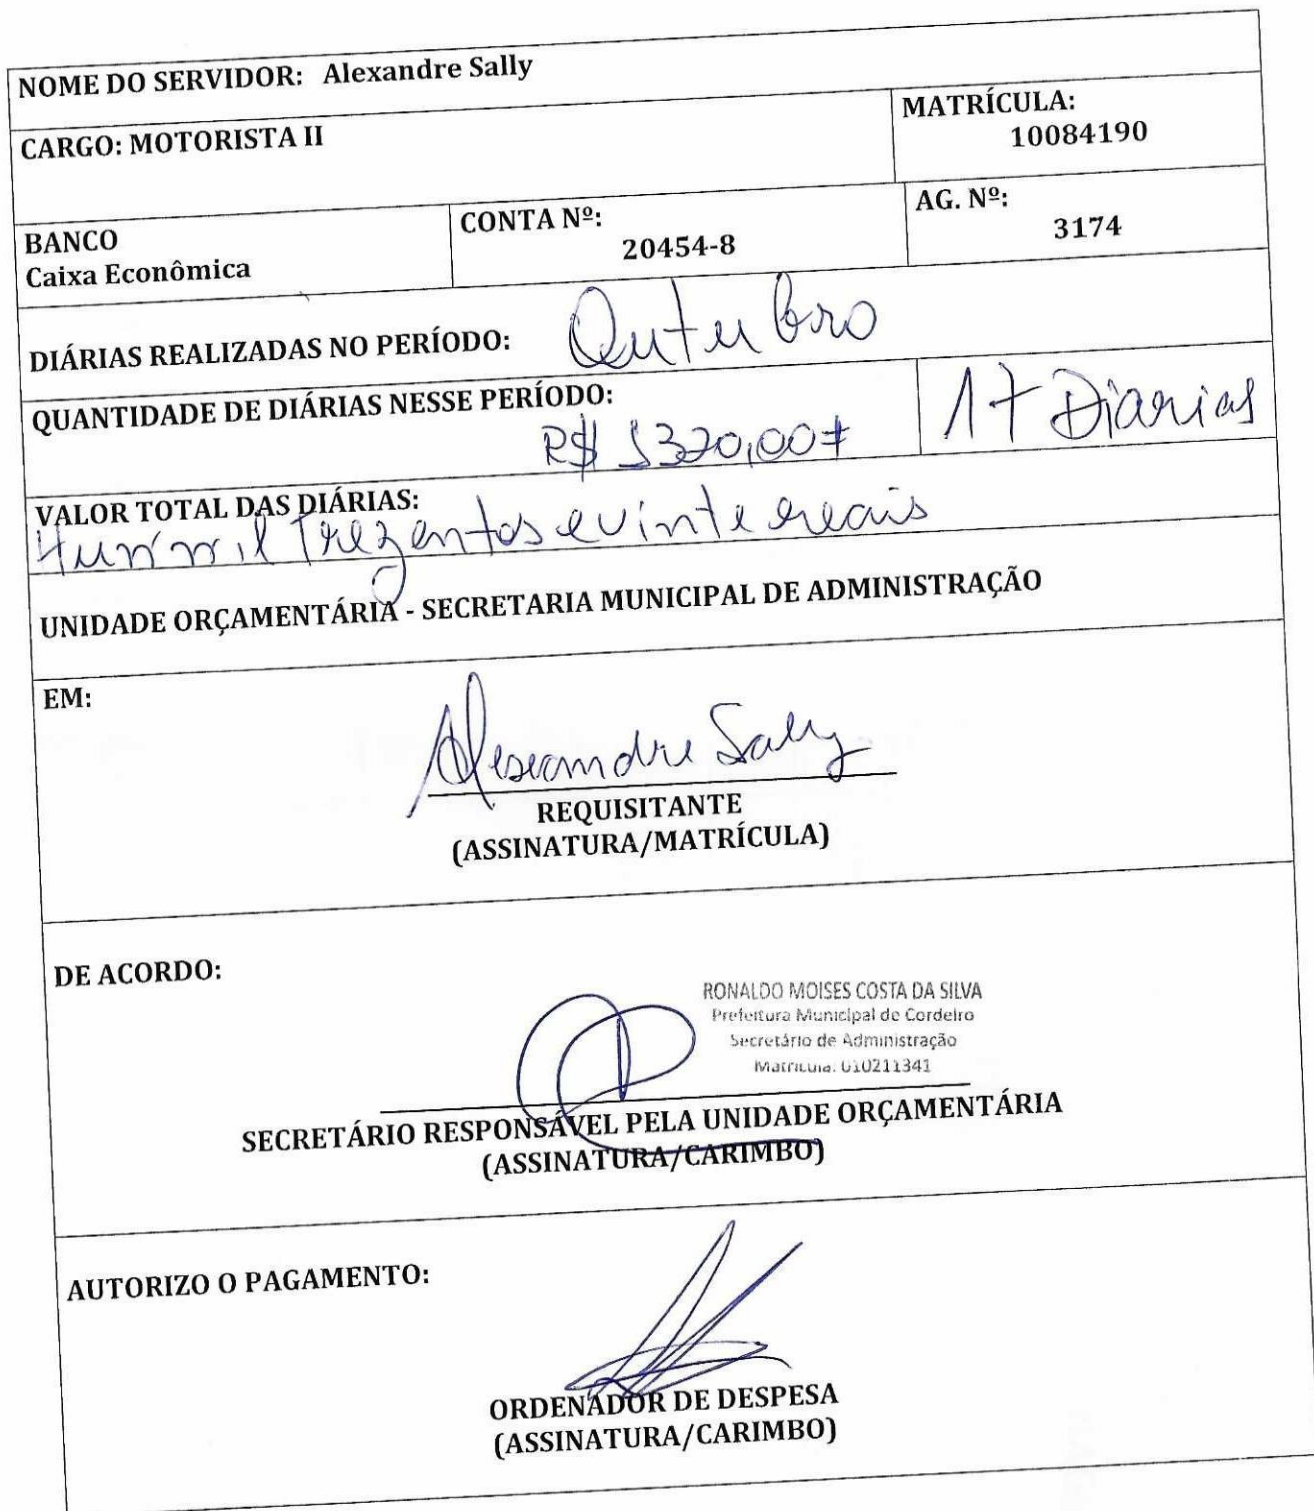 NOME DO SERVIDOR: Alexandre Sally
CARGO: MOTORISTA II
MATRÍCULA:
10084190
BANCO
Caixa Econômica
CONTA Nº:
20454-8
AG. Nº:
3174
DIÁRIAS REALIZADAS NO PERÍODO: Outubro
QUANTIDADE DE DIÁRIAS NESSE PERÍODO:
R$ 1320,00
17 Diarias
VALOR TOTAL DAS DIÁRIAS:
Hum mil Trezentos e vinte reais
UNIDADE ORÇAMENTÁRIA - SECRETARIA MUNICIPAL DE ADMINISTRAÇÃO
EM:
Alexandre Sally
REQUISITANTE
(ASSINATURA/MATRÍCULA)
DE ACORDO:
RONALDO MOISES COSTA DA SILVA
Prefeitura Municipal de Cordeiro
Secretário de Administração
Matrícula: 010211341
SECRETÁRIO RESPONSÁVEL PELA UNIDADE ORÇAMENTÁRIA
(ASSINATURA/CARIMBO)
AUTORIZO O PAGAMENTO:
ORDENADOR DE DESPESA
(ASSINATURA/CARIMBO)